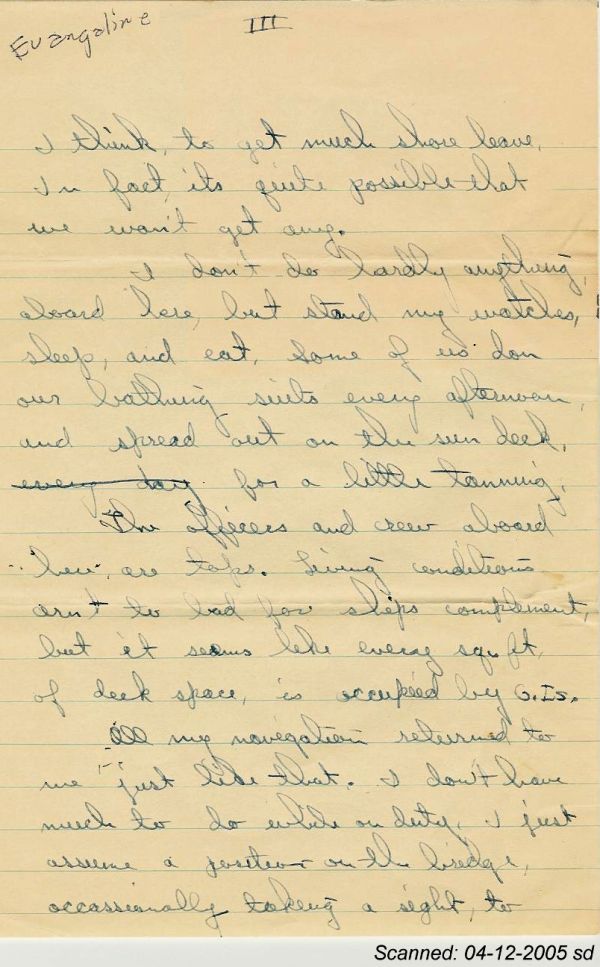 Evangaline
III
I think, to get much shore leave.
In fact, its quite possible that
we won't get any.
I don't do hardly anything,
aboard here, but stand my watches,
sleep, and eat. Some of us don
our bathing suits every afternoon,
and spread out on the sun deck,
every day for a little tanning.
The officers and crew aboard
here, are tops. Living conditions
arn't to bad for ships complement,
but it seems like every sq. ft.
of deck space, is occupied by G.Is.
All my navigation returned to
me just like that. I don't have
much to do while on duty. I just
assume a position on the bridge,
occassionally taking a sight, to
Scanned: 04-12-2005 sd